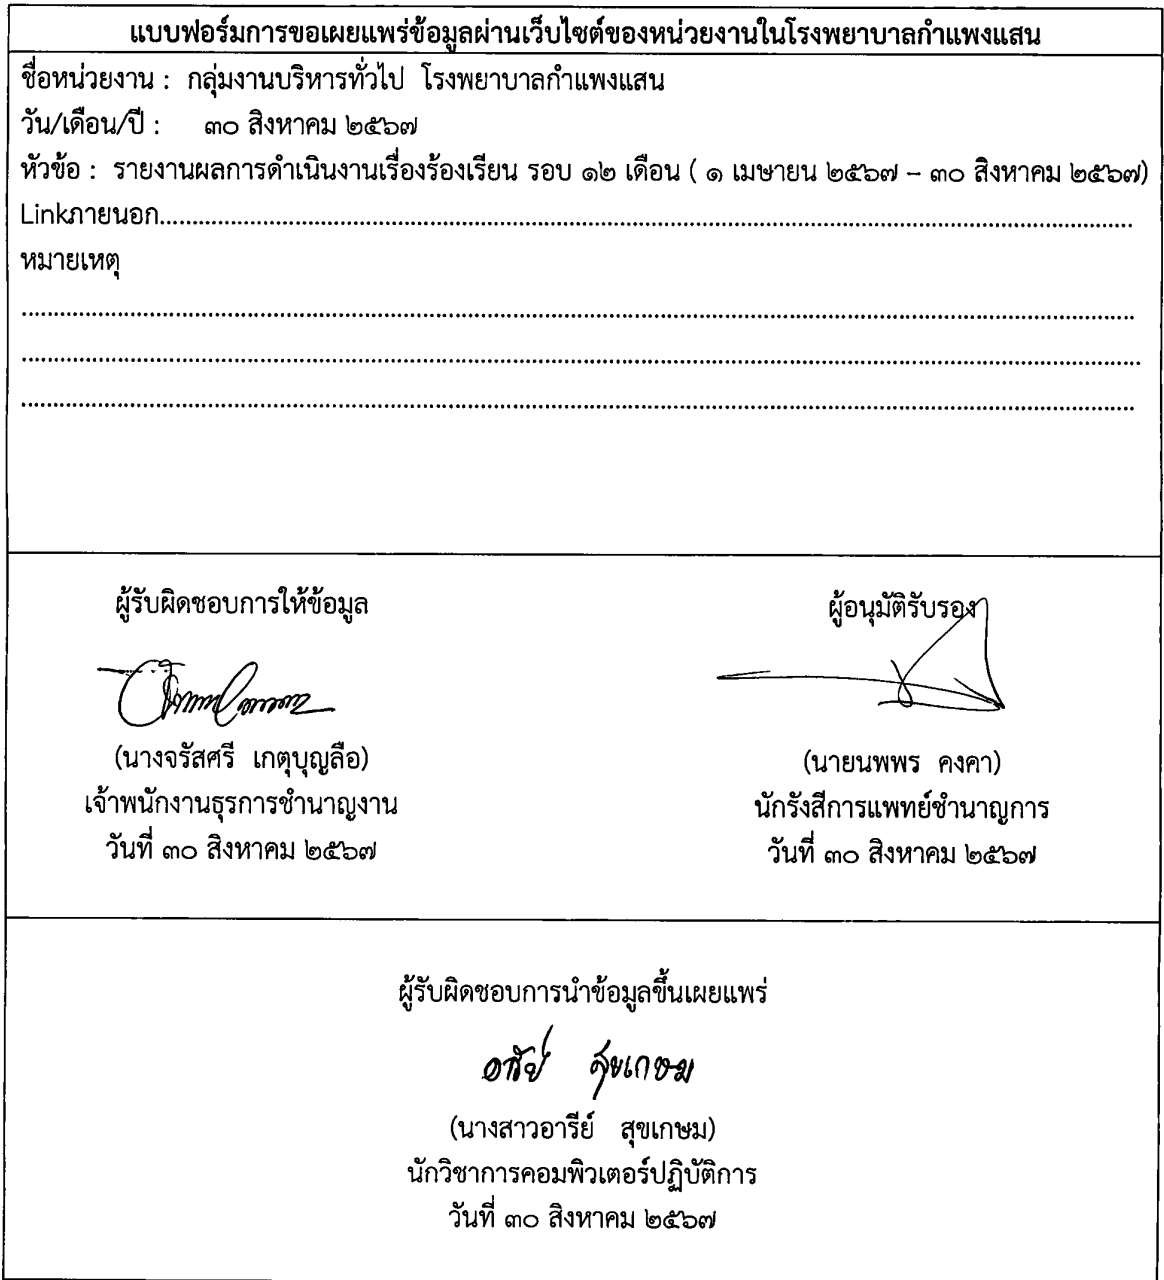 แบบฟอร์มการขอเผยแพร่ข้อมูลผ่านเว็บไซต์ของหน่วยงานในโรงพยาบาลกำแพงแสน
ชื่อหน่วยงาน : กลุ่มงานบริหารทั่วไป โรงพยาบาลกำแพงแสน
วัน/เดือน/ปี : ๓๐ สิงหาคม ๒๕๖๗
หัวข้อ : รายงานผลการดำเนินงานเรื่องร้องเรียน รอบ ๑๒ เดือน ( ๑ เมษายน ๒๕๖๗ – ๓๐ สิงหาคม ๒๕๖๗)
Linkภายนอก
หมายเหตุ
ผู้รับผิดชอบการให้ข้อมูล
(นางจรัสศรี เกตุบุญลือ)
เจ้าพนักงานธุรการชำนาญงาน
วันที่ ๓๐ สิงหาคม ๒๕๖๗
ผู้อนุมัติรับรอง
(นายนพพร คงคา)
นักรังสีการแพทย์ชำนาญการ
วันที่ ๓๐ สิงหาคม ๒๕๖๗
ผู้รับผิดชอบการนำข้อมูลขึ้นเผยแพร่
อารีย์ สุขเกษม
(นางสาวอารีย์ สุขเกษม)
นักวิชาการคอมพิวเตอร์ปฏิบัติการ
วันที่ ๓๐ สิงหาคม ๒๕๖๗